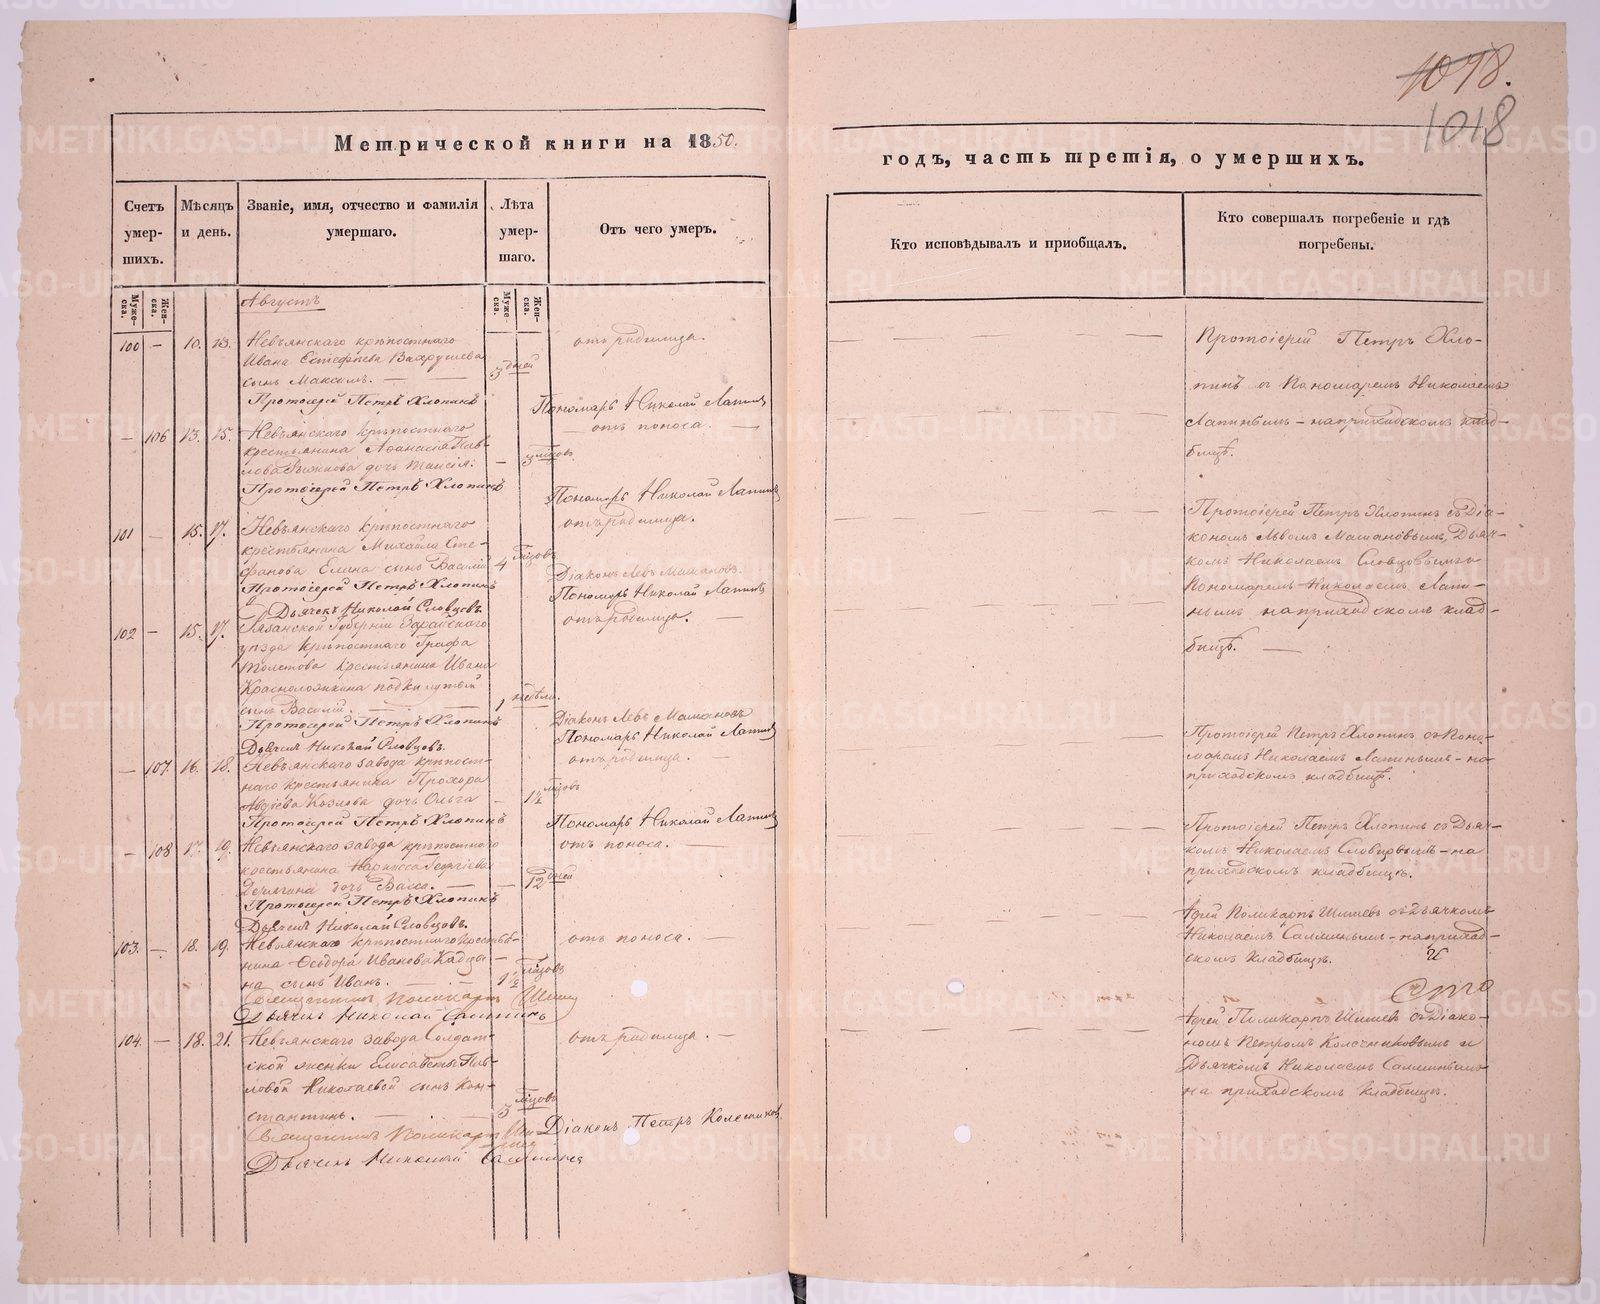 1018.
1018
Метрической книги на 1850.
годъ, часть третія, о умершихъ.
Счетъ умер-шихъ.
Мѣсяцъ и день.
Званіе, имя, отчество и фамилія умершаго.
Лѣта умер-шаго.
Отъ чего умеръ.
Кто исповѣдывалъ и пріобщалъ.
Кто совершалъ погребеніе и гдѣ погребены.
Муже-ска.
Жен-ска.
Муже-ска.
Жен-ска.
Августъ
100 — 10. 13. Невьянскаго крѣпостнаго
Ивана Евстефѣева Вахрушева
сынъ Максимъ. — 3 дней
отъ родимца.
Протоіерей Петръ Хлопинъ
Пономарь Николай Лапинъ
— 106 13. 15. Невьянскаго крѣпостнаго
крестьянина Аѳанасія Пав-
лова дочь Таисія. — 3 мѣсцовъ
отъ поноса. —
Протоіерей Петръ Хлопинъ
Пономарь Николай Лапинъ
101 — 15. 17. Невьянскаго крѣпостнаго
крестьянина Михаила Сте-
фанова Елина сынъ Василій 4 мѣсцовъ
отъ родимца.
Протоіерей Петръ Хлопинъ
Діаконъ Левъ Мамановъ.
Пономарь Николай Лапинъ
Дьячекъ Николай Словцовъ.
102 — 15. 17. Рязанской Губерніи Зарайскаго
уѣзда крѣпостнаго Графа
Толстова крестьянина Ивана
сынъ Василій. — 1 недѣли.
отъ родимца. —
Протоіерей Петръ Хлопинъ
Діаконъ Левъ Мамановъ
Пономарь Николай Лапинъ
Дьячекъ Николай Словцовъ.
— 107. 16. 18. Невьянскаго завода крѣпост-
наго крестьянина Прохора
Авдіева Козлова дочь Ольга — 1½ мѣсцовъ
отъ родимца. —
Протоіерей Петръ Хлопинъ
Пономарь Николай Лапинъ
— 108 17. 19. Невьянскаго завода крѣпостнаго
крестьянина Наркисса Георгіева
дочь Васса. — 12 дней
отъ поноса. —
Протоіерей Петръ Хлопинъ
Дьячекъ Николай Словцовъ.
103. — 18. 19. Невьянскаго крѣпостнаго крестья-
нина Ѳеодора Иванова Кадцы-
на сынъ Иванъ. — 1½ мѣсцовъ
отъ поноса. —
Священникъ Поликарпъ
Дьячекъ Николай
104. — 18. 21. Невьянскаго завода Солдат-
ской женки Елисаветы Пав-
ловой Николаевой сынъ Кон-
стантинъ. — 3 мѣсцовъ
отъ родимца. —
Священникъ Поликарпъ
Діаконъ Петръ Колесниковъ
Дьячекъ Николай
Протоіерей Петръ Хло-
пинъ съ Пономаремъ Николаемъ
Лапинымъ — на приходскомъ клад-
бищѣ.
Протоіерей Петръ Хлопинъ съ Діа-
кономъ Львомъ Мамановымъ, Дьяч-
комъ Николаемъ Словцовымъ и
Пономаремъ Николаемъ Лапи-
нымъ на приходскомъ клад-
бищѣ. —
Протоіерей Петръ Хлопинъ съ Поно-
маремъ Николаемъ Лапинымъ — на
приходскомъ кладбищѣ.
Протоіерей Петръ Хлопинъ съ Дьяч-
комъ Николаемъ Словцовымъ — на
приходскомъ кладбищѣ.
Іерей Поликарпъ Шишевъ съ Дьячкомъ
Николаемъ — на приход-
скомъ кладбищѣ.
Іерей Поликарпъ Шишевъ съ Діако-
номъ Петромъ Колесниковымъ и
Дьячкомъ Николаемъ
на приходскомъ кладбищѣ.
METRIKI.GASO-URAL.RU